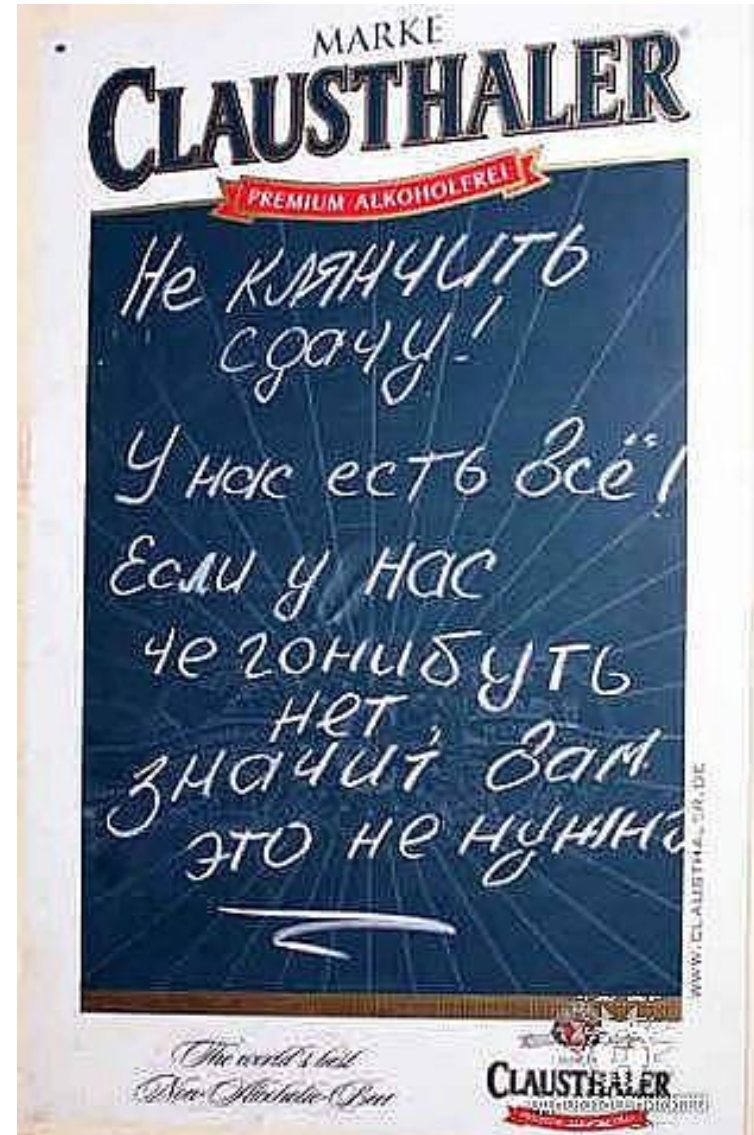 MARKE
CLAUSTHALER
PREMIUM ALKOHOLFREI
Не клянчить
сдачу!
У нас есть всё!
Если у нас
чегонибуть
нет,
значит вам
это не нужно
WWW.CLAUSTHALER.DE
The world's best
Non-Alcoholic-Beer
CLAUSTHALER